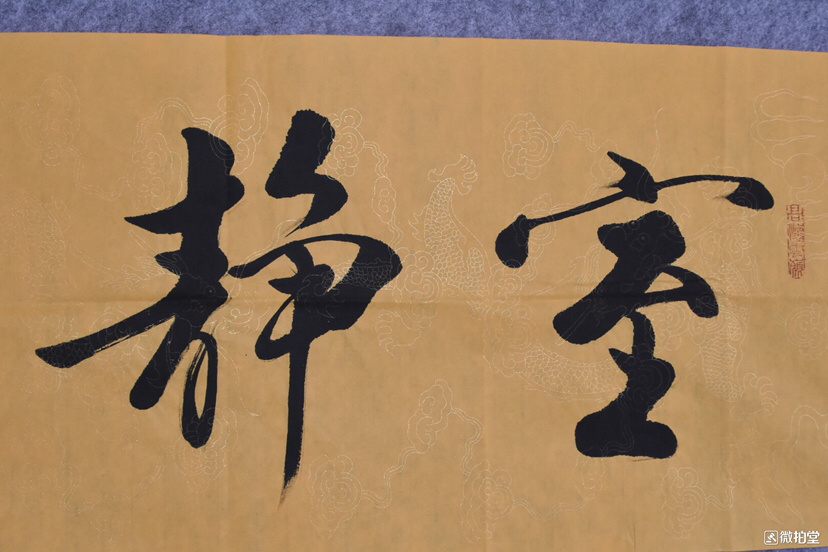 室静
微拍堂